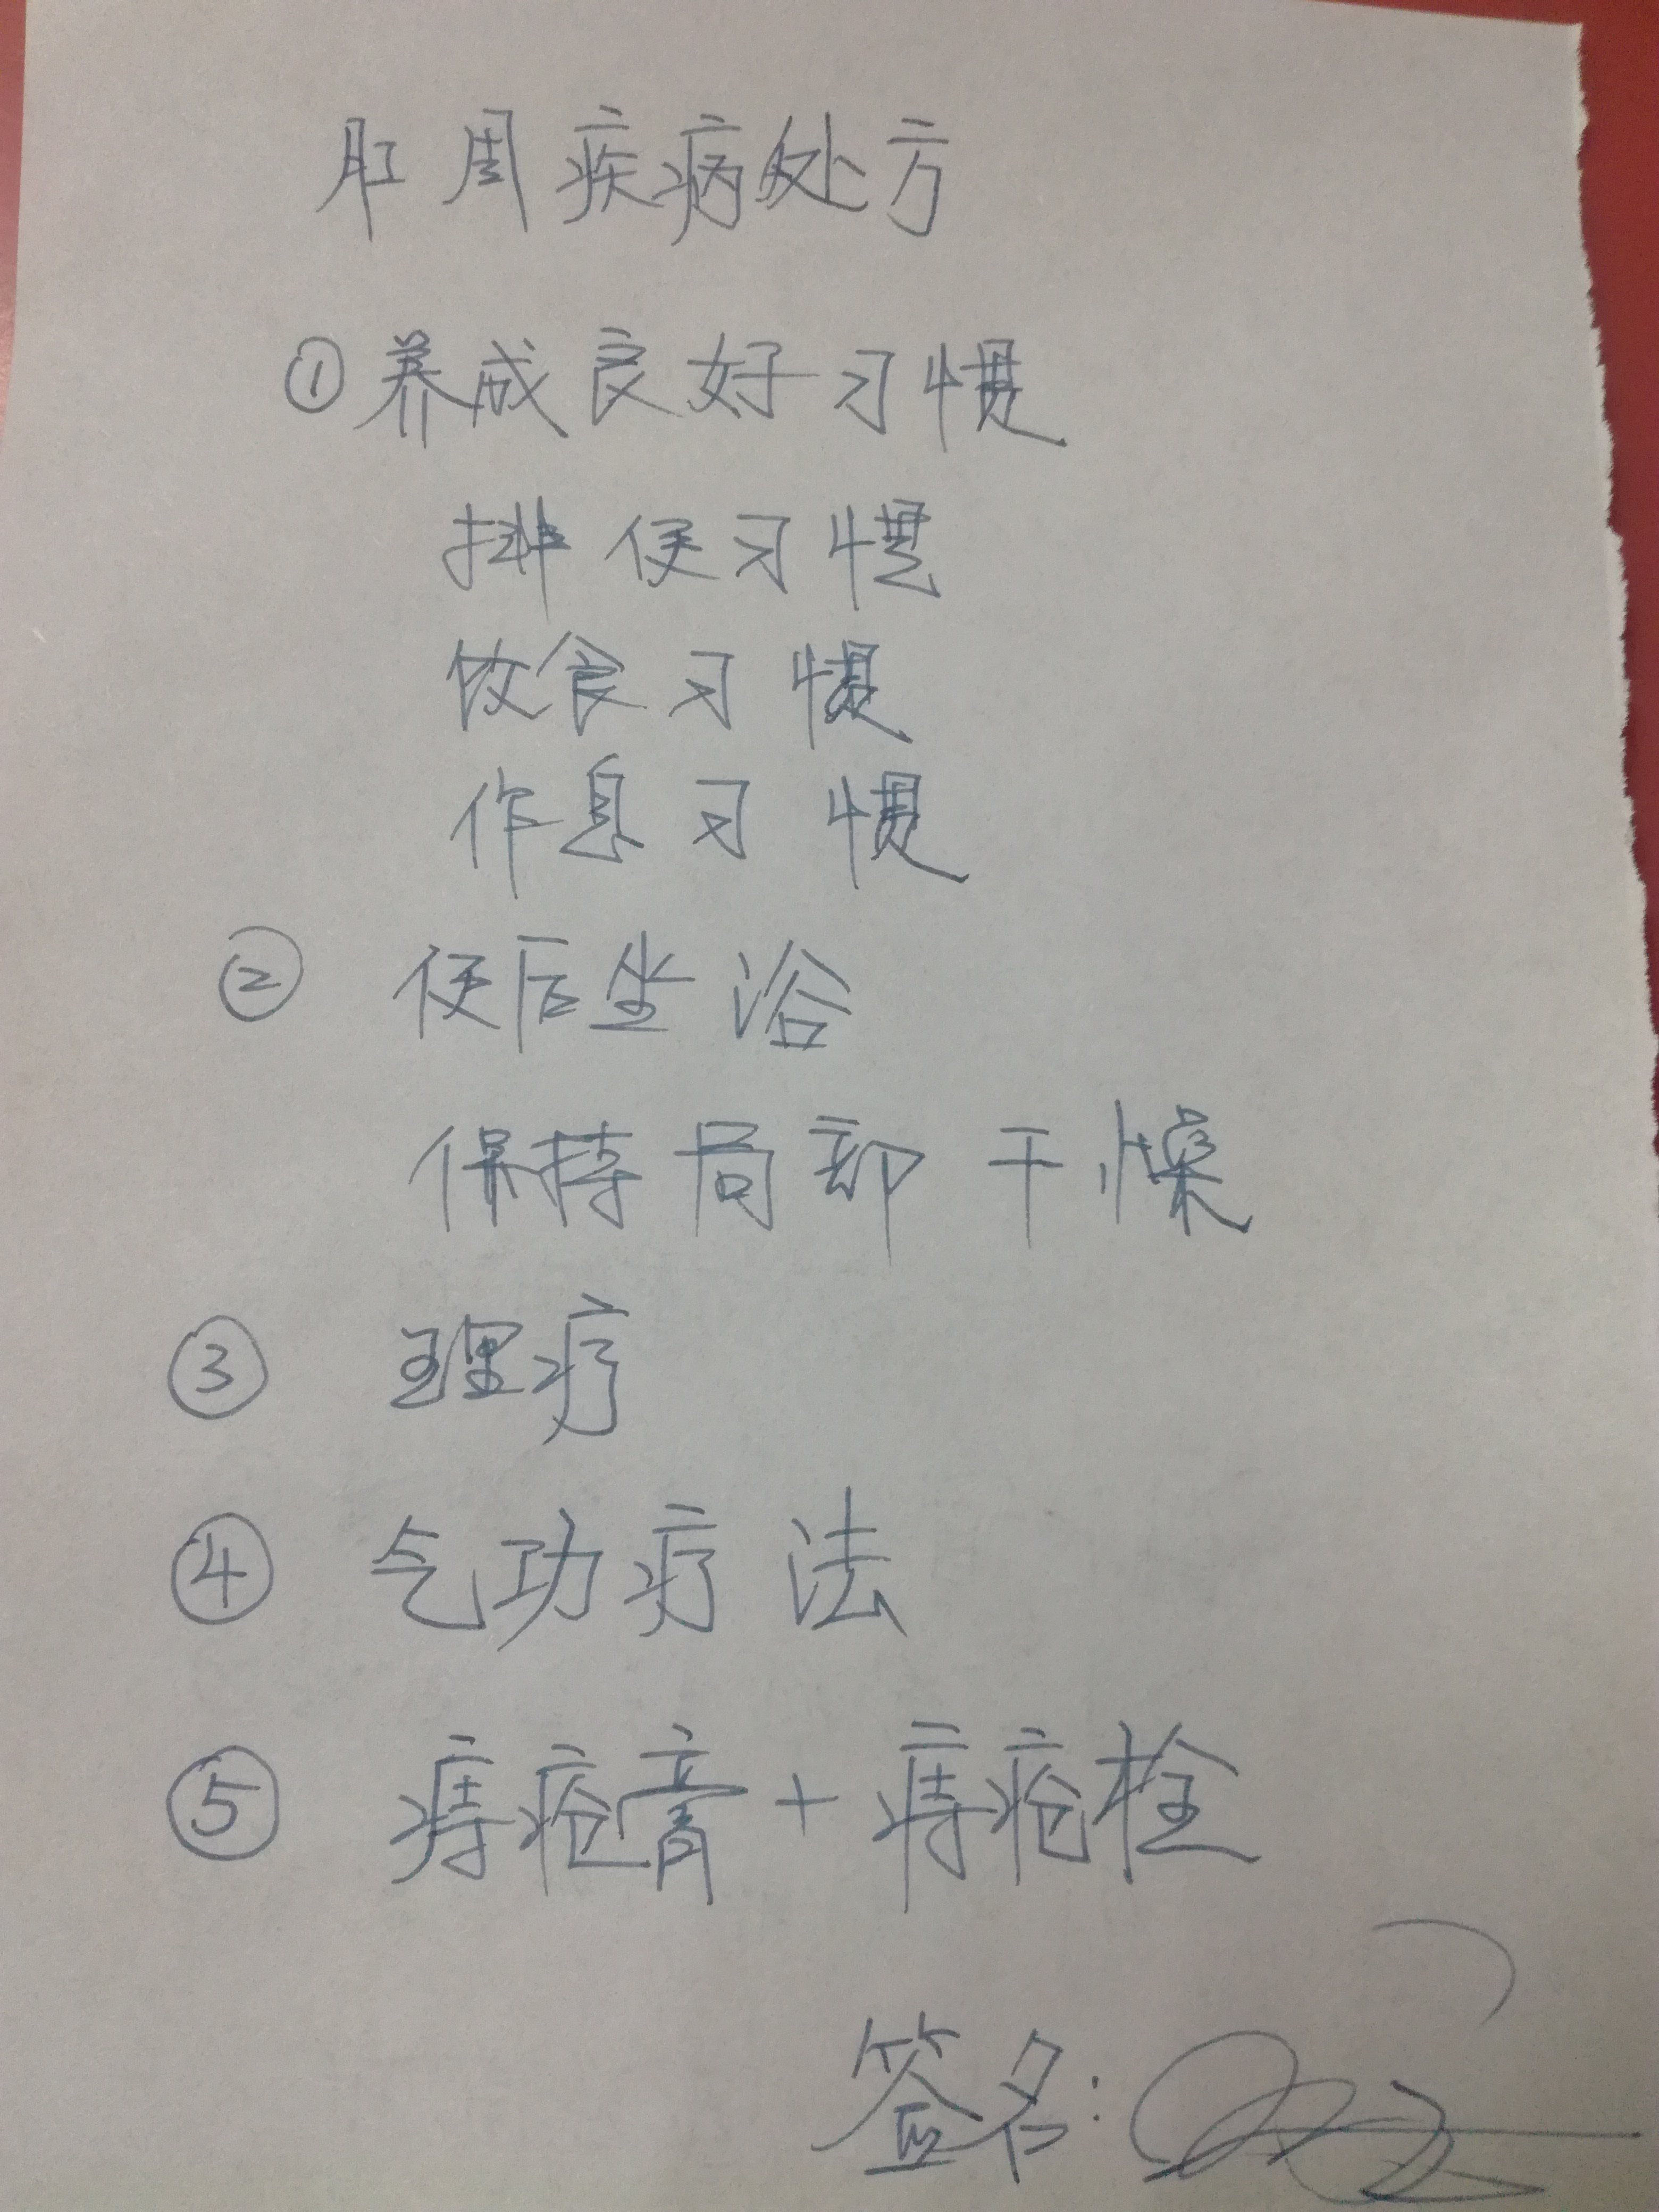 肛周疾病处方
①养成良好习惯
排便习惯
饮食习惯
作息习惯
② 便后坐浴
保持局部干燥
③ 理疗
④ 气功疗法
⑤ 痔疮膏+痔疮栓
签名: